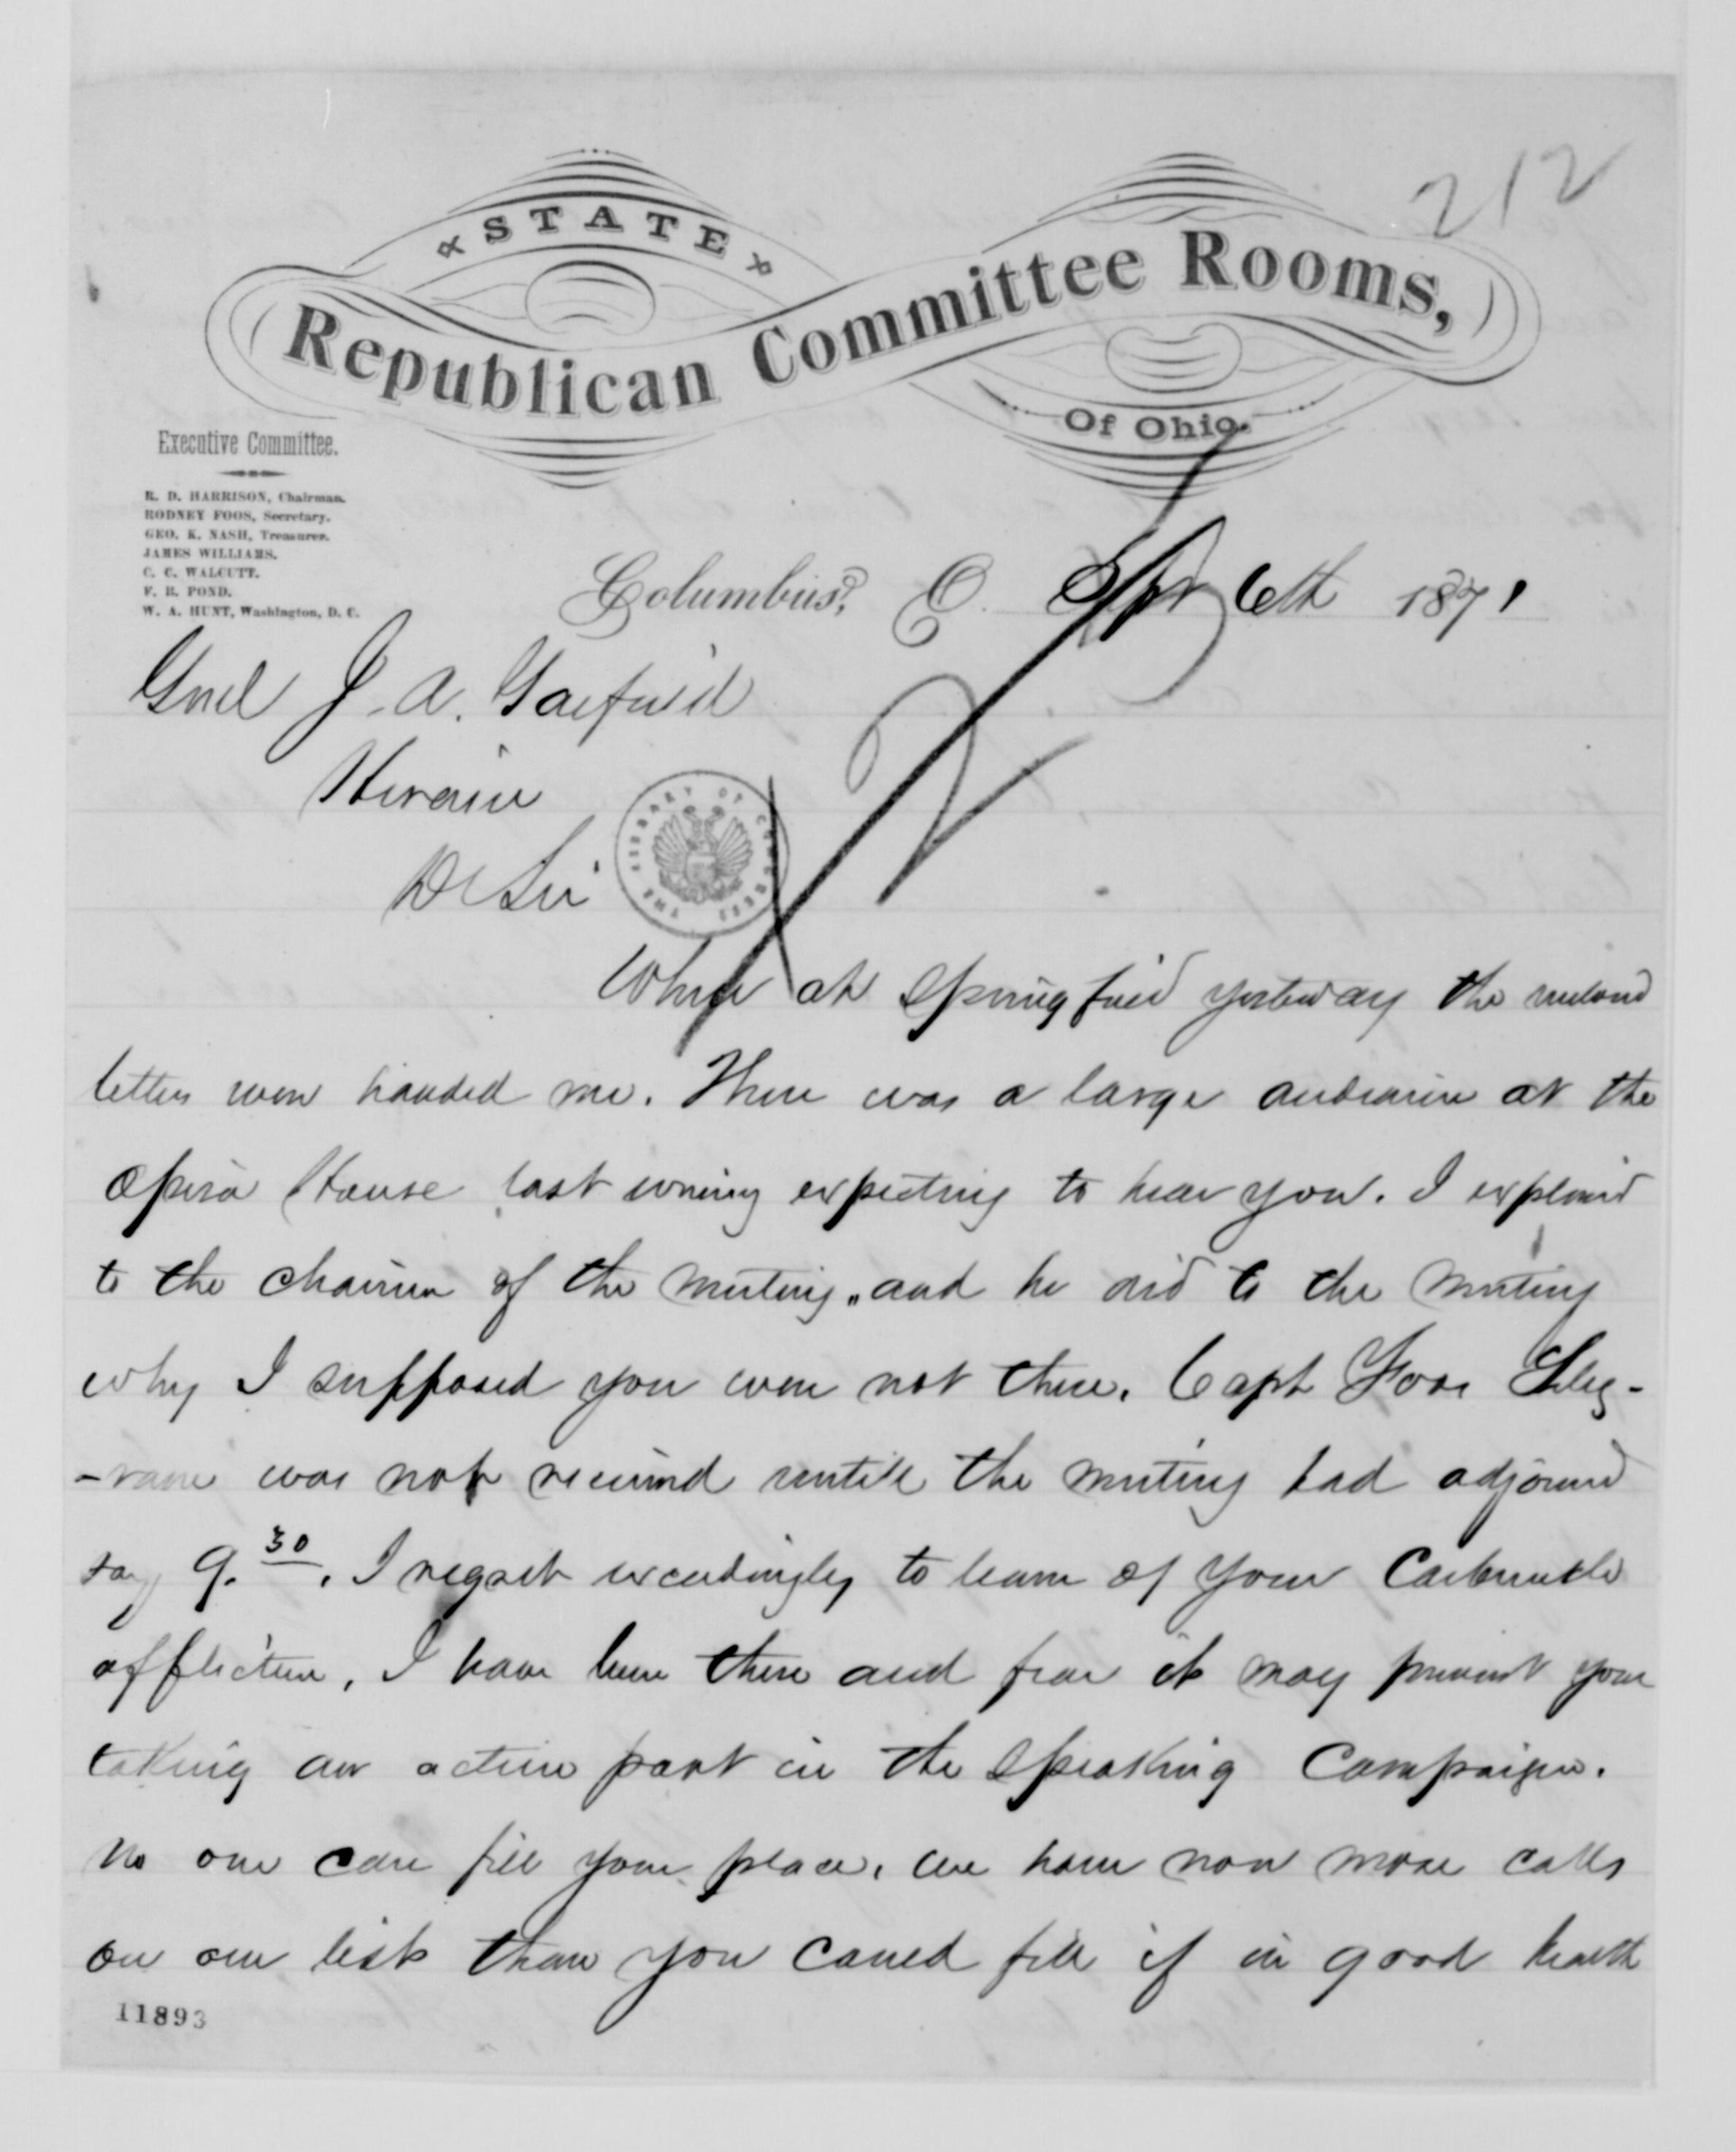 212
STATE
Republican Committee Rooms,
Of Ohio.
Executive Committee.
R. D. HARRISON, Chairman.
RODNEY FOOS, Secretary.
GEO. K. NASH, Treasurer.
JAMES WILLIAMS.
C. C. WALCUTT.
F. B. POND.
W. A. HUNT, Washington, D. C.
Columbus, O. Sept 6th 1871
Genl J. A. Garfield
Hiram
Dr Sir
THE LIBRARY OF CONGRESS
While at Springfield yesterday the inclosed
letters were handed me. There was a large audience at the
Opera House last evening expecting to hear you. I explained
to the chairman of the meeting, and he did to the meeting
why I supposed you were not there. Capt Foos Teleg-
-ram was not received untill the meeting had adjourned
say 9.30. I regret exceedingly to learn of your Carbuncle
affliction, I have been there and fear it may prevent your
taking an active part in the speaking Campaign.
No one can fill your place. we have now more calls
on our list than you could fill if in good health
11893